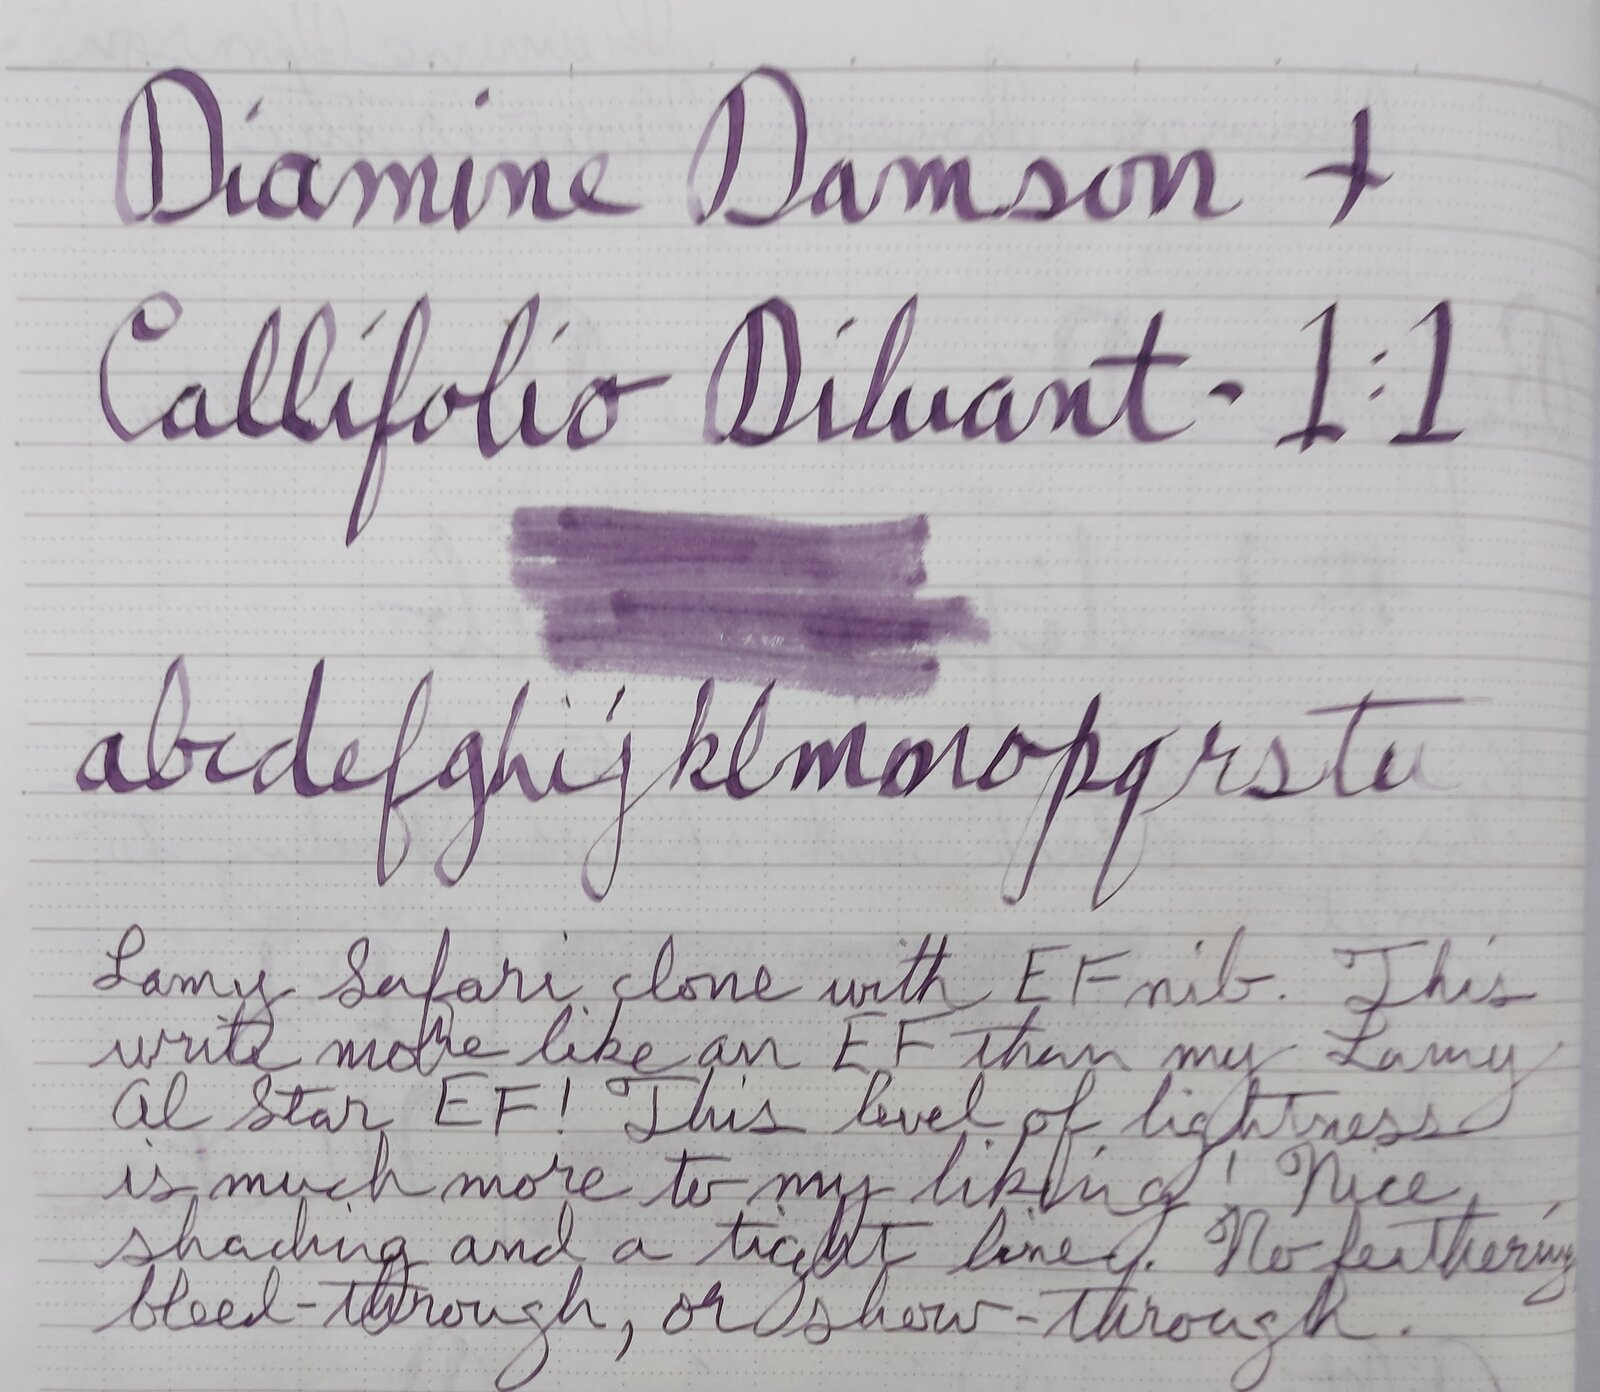 Diamine Damson +
Callifolio Diluant - 1:1
abcdefghijklmnopqrstu
Lamy Safari clone with EF nib. This
write more like an EF than my Lamy
Al Star EF! This level of lightness
is much more to my liking! Nice
shading and a tight line. No feathering,
bleed-through, or show-through.